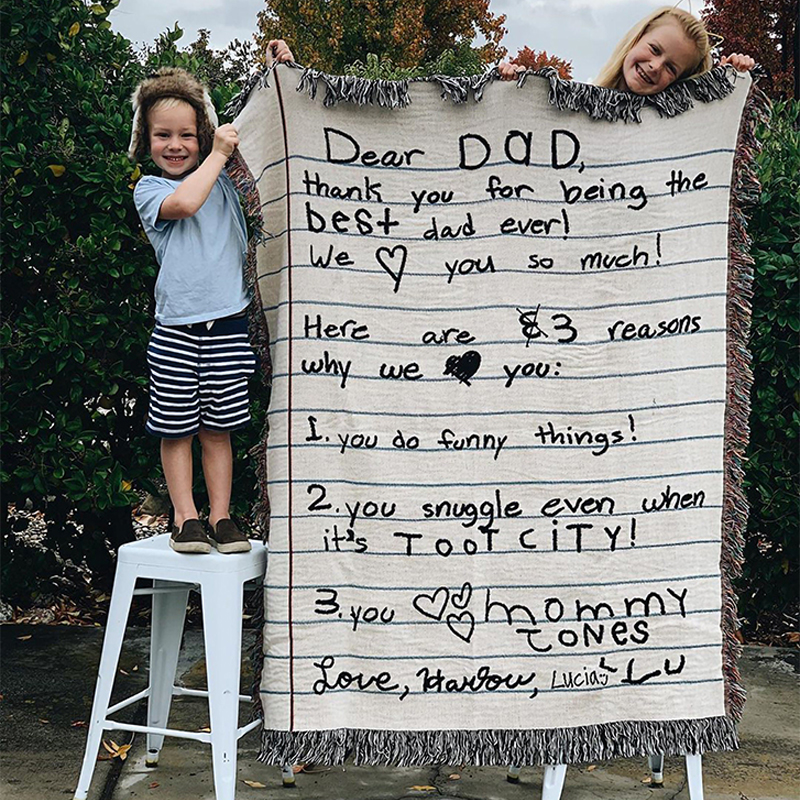 Dear DAD,
thank you for being the
best dad ever!
We ♡ you so much!
Here are 3 reasons
why we ♥ you:
1. you do funny things!
2. you snuggle even when
it's TOOT CITY!
3. you ♡♡♡ mommy
JONES
Love, Harlow, Lucia